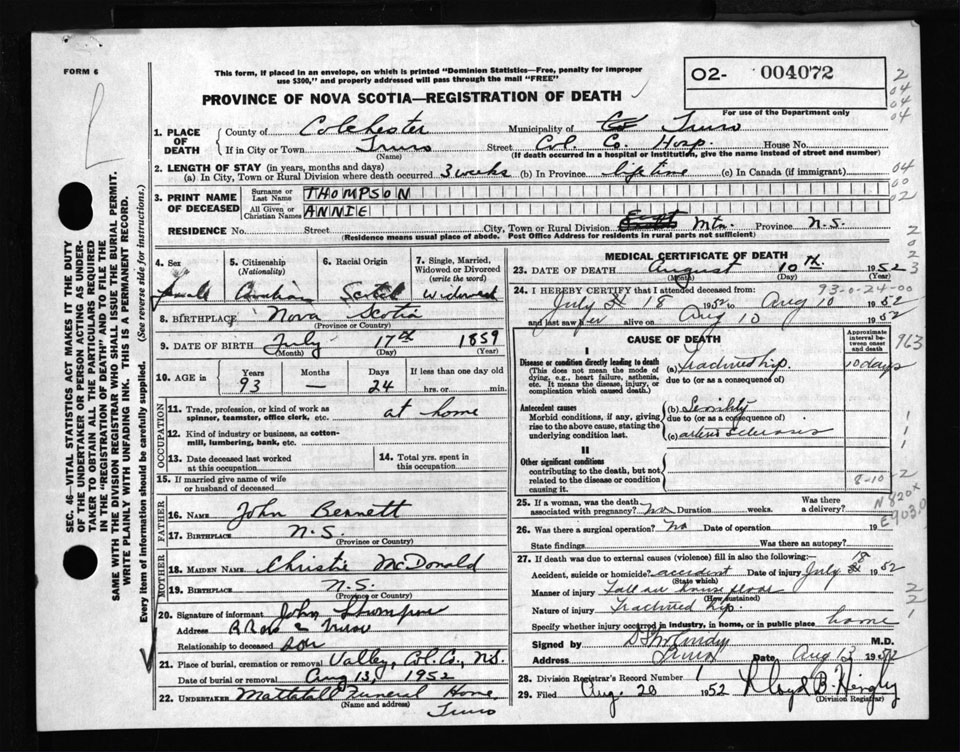 FORM 6
This form, if placed in an envelope, on which is printed "Dominion Statistics—Free, penalty for improper
use $300," and properly addressed will pass through the mail "FREE"
O2- 004072
PROVINCE OF NOVA SCOTIA—REGISTRATION OF DEATH
For use of the Department only
1. PLACE OF DEATH
County of Colchester Municipality of Truro
If in City or Town Truro Street Col. Co. Hosp. House No.
(Name) (If death occurred in a hospital or institution, give the name instead of street and number)
2. LENGTH OF STAY (in years, months and days)
(a) In City, Town or Rural Division where death occurred 3 weeks (b) In Province lifetime (c) In Canada (if immigrant)
3. PRINT NAME OF DECEASED
Surname or Last Name THOMPSON
All Given or Christian Names ANNIE
RESIDENCE No. Street City, Town or Rural Division Mtn. Province N.S.
(Residence means usual place of abode. Post Office Address for residents in rural parts not sufficient)
4. Sex female
5. Citizenship (Nationality) Canadian
6. Racial Origin Scotch
7. Single, Married, Widowed or Divorced (write the word) Widowed
8. BIRTHPLACE Nova Scotia
(Province or Country)
9. DATE OF BIRTH July 17th 1859
(Month) (Day) (Year)
10. AGE in Years 93 Months — Days 24 If less than one day old hrs. or min.
OCCUPATION
11. Trade, profession, or kind of work as spinner, teamster, office clerk, etc. at home
12. Kind of industry or business, as cotton-mill, lumbering, bank, etc.
13. Date deceased last worked at this occupation
14. Total yrs. spent in this occupation
15. If married give name of wife or husband of deceased
FATHER
16. NAME John Bennett
17. BIRTHPLACE N.S.
(Province or Country)
MOTHER
18. MAIDEN NAME Christie McDonald
19. BIRTHPLACE N.S.
(Province or Country)
20. Signature of informant John Thompson
Address R R no 2 Truro
Relationship to deceased son
21. Place of burial, cremation or removal Valley, Col. Co., N.S.
Date of burial or removal Aug 13, 1952
22. UNDERTAKER Mattatall Funeral Home
(Name and address) Truro
MEDICAL CERTIFICATE OF DEATH
23. DATE OF DEATH August 10th 1952
(Month) (Day)
93-0-24-00
24. I HEREBY CERTIFY that I attended deceased from:
July 18 1952 to Aug 10 1952
and last saw her alive on Aug 10 1952
CAUSE OF DEATH
Approximate interval between onset and death
I
Disease or condition directly leading to death (a) Fractured hip. 10 days
(This does not mean the mode of dying, e.g., heart failure, asthenia, etc. It means the disease, injury, or complication which caused death.)
due to (or as a consequence of)
Antecedent causes (b) Senility
Morbid conditions, if any, giving rise to the above cause, stating the underlying condition last.
due to (or as a consequence of)
(c) arterio sclerosis
II
Other significant conditions
contributing to the death, but not related to the disease or condition causing it.
8-10-2
25. If a woman, was the death associated with pregnancy? no Duration weeks. Was there a delivery?
26. Was there a surgical operation? no Date of operation 19
State findings Was there an autopsy?
27. If death was due to external causes (violence) fill in also the following:
Accident, suicide or homicide? accident Date of injury July 18 1952
(State which)
Manner of injury Fall on house floor
(How sustained)
Nature of injury Fractured hip.
Specify whether injury occurred in industry, in home, or in public place home
Signed by M.D.
Address Truro Date Aug 13 1952
28. Division Registrar's Record Number
29. Filed Aug. 20 1952 Lloyd B. Hingley
(Division Registrar)
963
N820x
E903.0
SEC. 46—VITAL STATISTICS ACT MAKES IT THE DUTY
OF THE UNDERTAKER OR PERSON ACTING AS UNDER-
TAKER TO OBTAIN ALL THE PARTICULARS REQUIRED
IN THE "REGISTRATION OF DEATH" AND TO FILE THE
SAME WITH THE DIVISION REGISTRAR WHO SHALL ISSUE THE BURIAL PERMIT.
WRITE PLAINLY WITH UNFADING INK. THIS IS A PERMANENT RECORD.
Every item of information should be carefully supplied. (See reverse side for instructions.)